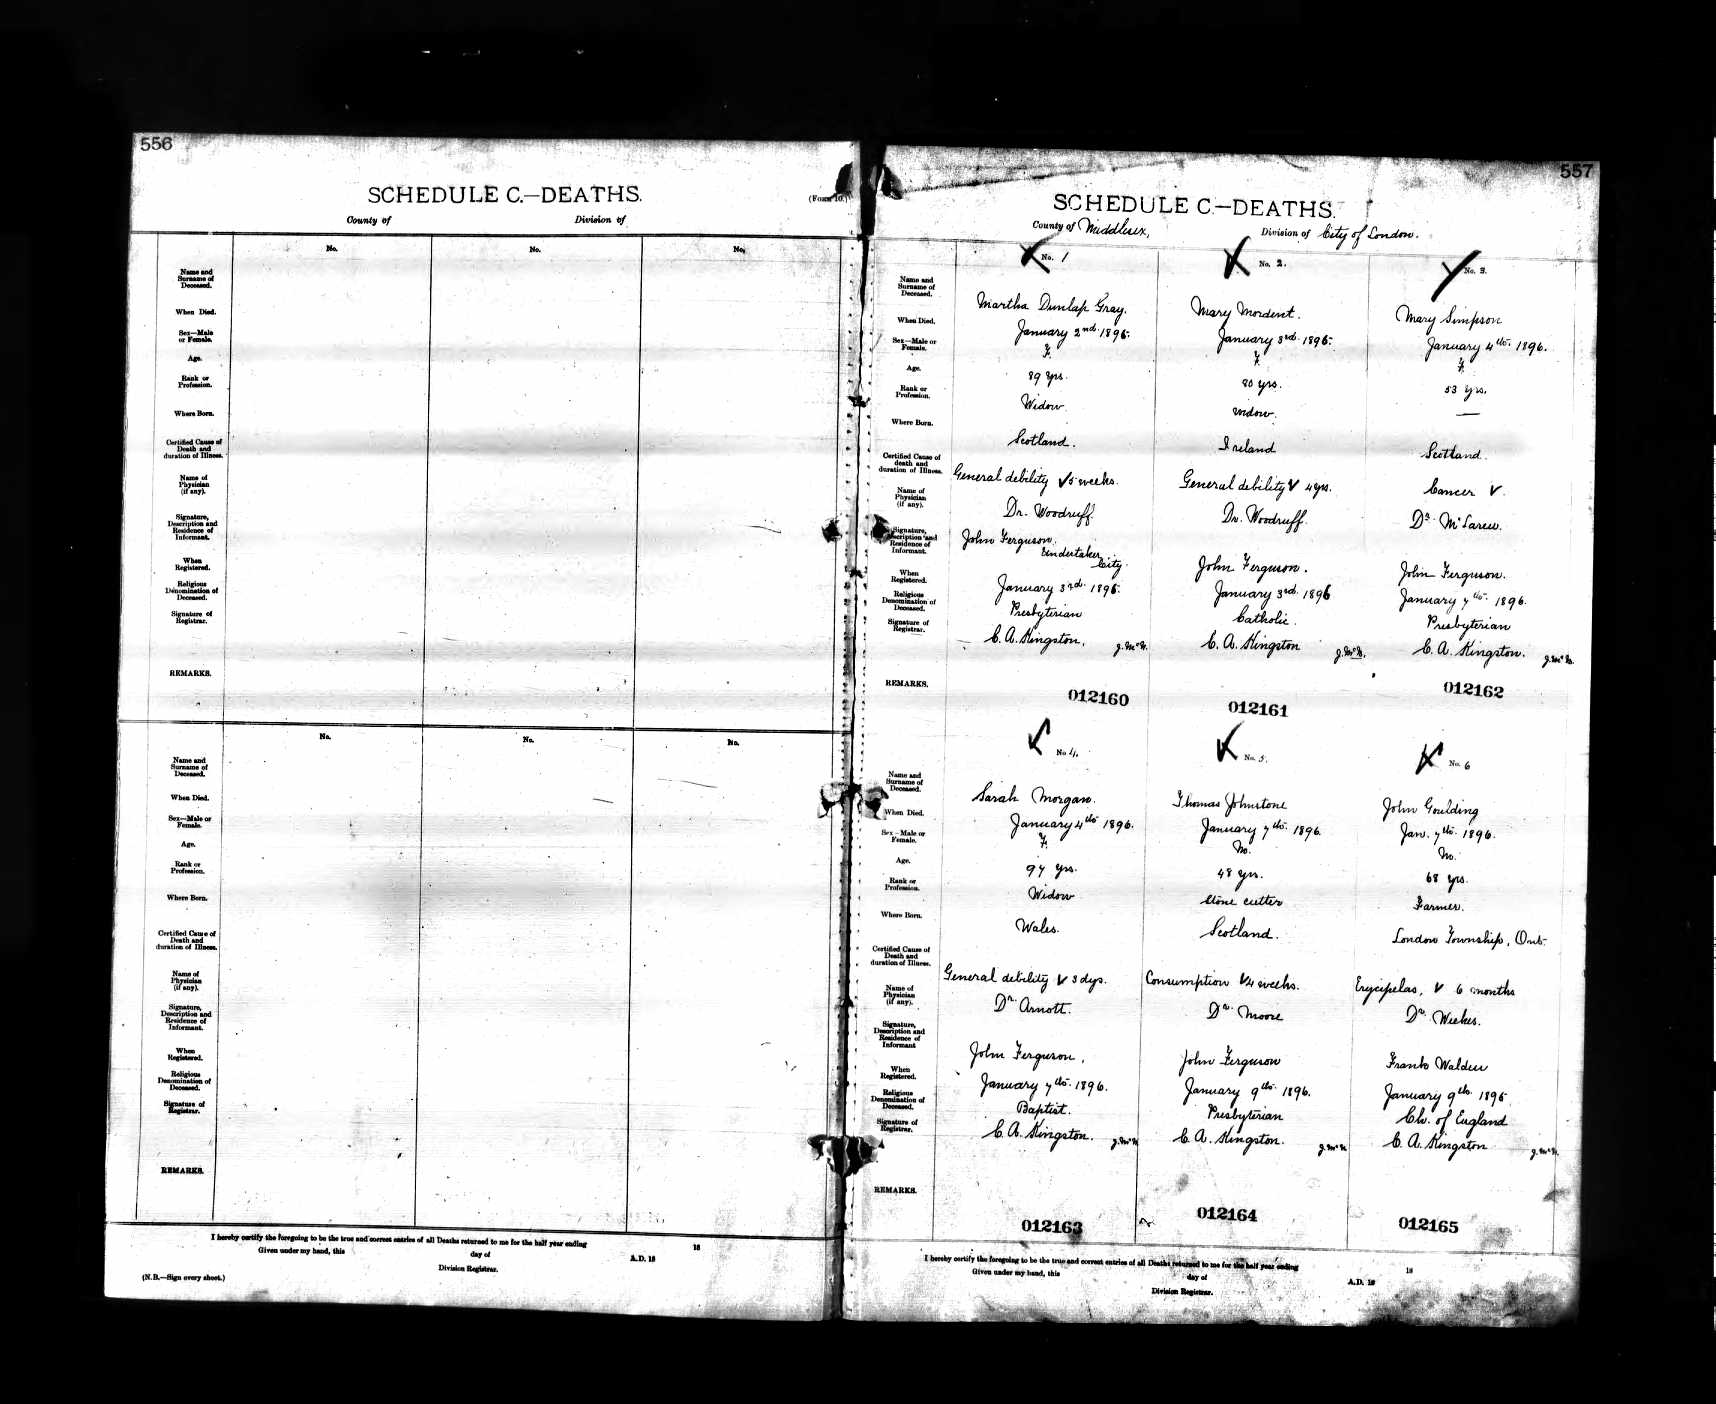 556
SCHEDULE C.—DEATHS.
(Form 10.)
County of Division of
No. No. No.
Name and
Surname of
Deceased.
When Died.
Sex—Male
or Female.
Age.
Rank or
Profession.
Where Born.
Certified Cause of
Death and
duration of Illness.
Name of
Physician
(if any).
Signature,
Description and
Residence of
Informant.
When
Registered.
Religious
Denomination of
Deceased.
Signature of
Registrar.
REMARKS.
No. No. No.
Name and
Surname of
Deceased.
When Died.
Sex—Male or
Female.
Age.
Rank or
Profession.
Where Born.
Certified Cause of
Death and
duration of Illness.
Name of
Physician
(if any).
Signature,
Description and
Residence of
Informant.
When
Registered.
Religious
Denomination of
Deceased.
Signature of
Registrar.
REMARKS.
I hereby certify the foregoing to be the true and correct entries of all Deaths returned to me for the half year ending 18
Given under my hand, this day of A.D. 18
Division Registrar.
(N.B.—Sign every sheet.)
557
SCHEDULE C.—DEATHS.
County of Middlesex, Division of City of London.
No. 1 No. 2. No. 3.
Name and
Surname of
Deceased.
Martha Dunlap Gray. Mary Mordent. Mary Simpson
When Died.
January 2nd. 1896. January 3rd. 1896. January 4th. 1896.
Sex—Male or
Female.
F. F. F.
Age.
89 yrs. 80 yrs. 53 yrs.
Rank or
Profession.
Widow. Widow. —
Where Born.
Scotland. Ireland Scotland.
Certified Cause of
death and
duration of Illness.
General debility 5 weeks. General debility 4 yrs. Cancer
Name of
Physician
(if any).
Dr. Woodruff. Dr. Woodruff. Dr. McLaren.
Signature,
Description and
Residence of
Informant.
John Ferguson.
Undertaker
City.
John Ferguson. John Ferguson.
When
Registered.
January 3rd. 1896. January 3rd. 1896 January 7th. 1896.
Religious
Denomination of
Deceased.
Presbyterian Catholic. Presbyterian
Signature of
Registrar.
C. A. Kingston, C. A. Kingston C. A. Kingston.
REMARKS.
012160 012161 012162
No 4. No. 5. No. 6
Name and
Surname of
Deceased.
Sarah Morgan. Thomas Johnstone John Goulding
When Died.
January 4th 1896. January 7th. 1896. Jan. 7th. 1896.
Sex—Male or
Female.
F. M. M.
Age.
97 yrs. 48 yrs. 68 yrs.
Rank or
Profession.
Widow Stone cutter Farmer.
Where Born.
Wales. Scotland. London Township, Ont.
Certified Cause of
Death and
duration of Illness.
General debility 3 dys. Consumption 4 weeks. Erycipelas, 6 months
Name of
Physician
(if any).
Dr. Arnott. Dr. Moore Dr. Wickes.
Signature,
Description and
Residence of
Informant
John Ferguson, John Ferguson Frank
When
Registered.
January 7th. 1896. January 9th. 1896. January 9th. 1896
Religious
Denomination of
Deceased.
Baptist. Presbyterian Ch. of England
Signature of
Registrar.
C. A. Kingston. C. A. Kingston. C. A. Kingston
REMARKS.
012163 012164 012165
I hereby certify the foregoing to be the true and correct entries of all Deaths returned to me for the half year ending 18
Given under my hand, this day of A.D. 18
Division Registrar.